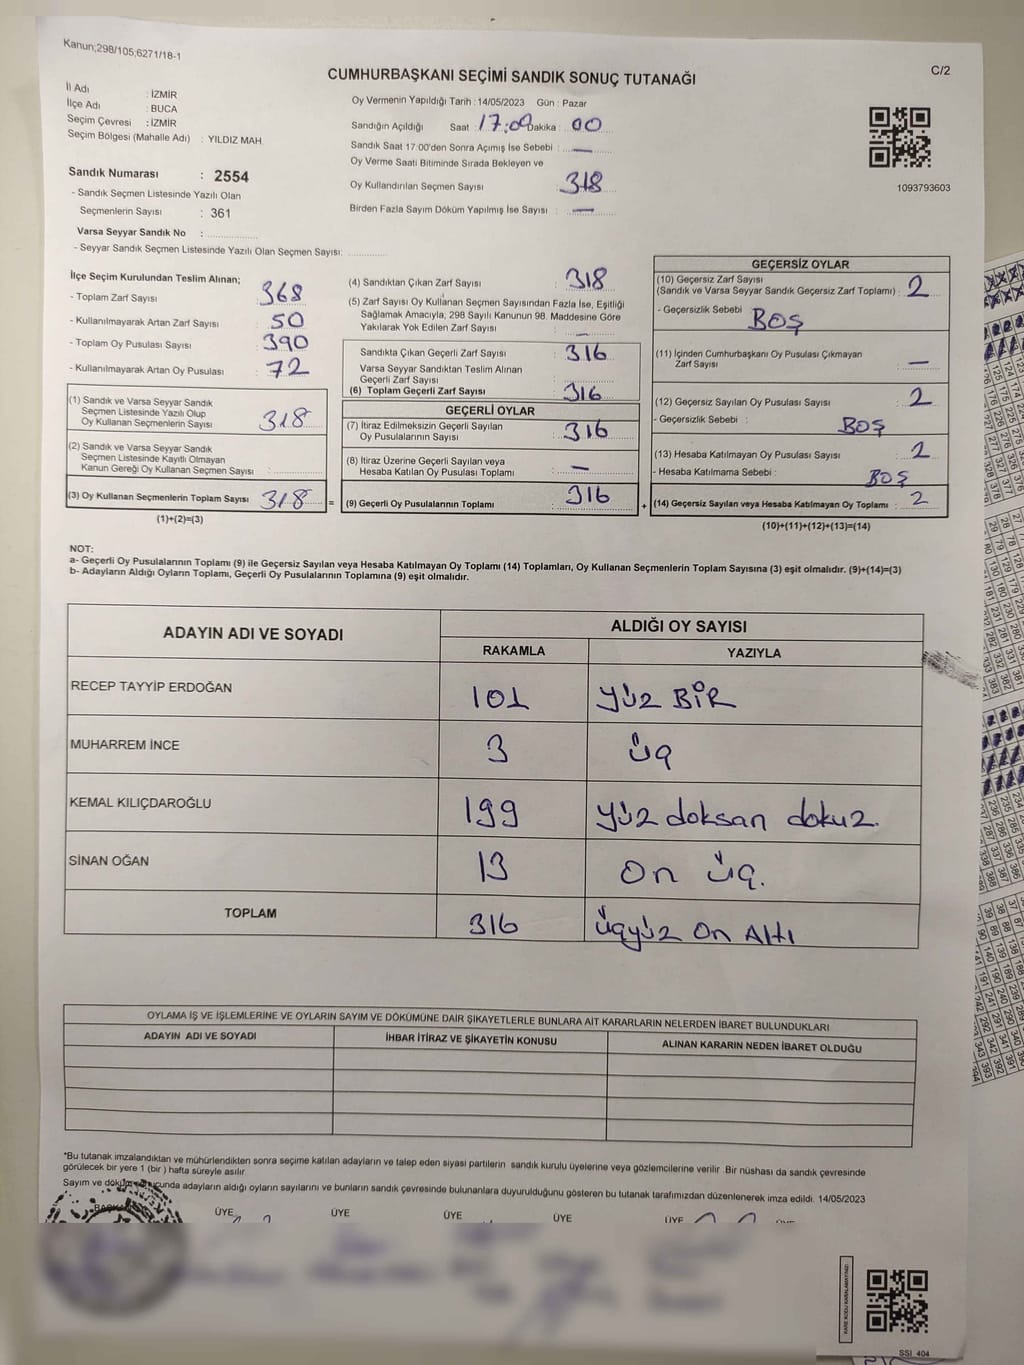 Kanun;298/105;6271/18-1
C/2
CUMHURBAŞKANI SEÇİMİ SANDIK SONUÇ TUTANAĞI
İl Adı : İZMİR
İlçe Adı : BUCA
Seçim Çevresi : İZMİR
Seçim Bölgesi (Mahalle Adı) : YILDIZ MAH.
Sandık Numarası : 2554
- Sandık Seçmen Listesinde Yazılı Olan
Seçmenlerin Sayısı : 361
Varsa Seyyar Sandık No :
- Seyyar Sandık Seçmen Listesinde Yazılı Olan Seçmen Sayısı:
Oy Vermenin Yapıldığı Tarih : 14/05/2023 Gün : Pazar
Sandığın Açıldığı Saat : 17:00 Dakika : 00
Sandık Saat 17:00'den Sonra Açımış İse Sebebi : —
Oy Verme Saati Bitiminde Sırada Bekleyen ve
Oy Kullandırılan Seçmen Sayısı : 318
Birden Fazla Sayım Döküm Yapılmış İse Sayısı : —
1093793603
İlçe Seçim Kurulundan Teslim Alınan;
- Toplam Zarf Sayısı : 368
- Kullanılmayarak Artan Zarf Sayısı : 50
- Toplam Oy Pusulası Sayısı : 390
- Kullanılmayarak Artan Oy Pusulası : 72
(1) Sandık ve Varsa Seyyar Sandık
Seçmen Listesinde Yazılı Olup
Oy Kullanan Seçmenlerin Sayısı : 318
(2) Sandık ve Varsa Seyyar Sandık
Seçmen Listesinde Kayıtlı Olmayan
Kanun Gereği Oy Kullanan Seçmen Sayısı :
(3) Oy Kullanan Seçmenlerin Toplam Sayısı : 318 =
(1)+(2)=(3)
(4) Sandıktan Çıkan Zarf Sayısı : 318
(5) Zarf Sayısı Oy Kullanan Seçmen Sayısından Fazla İse, Eşitliği
Sağlamak Amacıyla, 298 Sayılı Kanunun 98. Maddesine Göre
Yakılarak Yok Edilen Zarf Sayısı : —
Sandıkta Çıkan Geçerli Zarf Sayısı : 316
Varsa Seyyar Sandıktan Teslim Alınan
Geçerli Zarf Sayısı :
(6) Toplam Geçerli Zarf Sayısı : 316
GEÇERLİ OYLAR
(7) İtiraz Edilmeksizin Geçerli Sayılan
Oy Pusulalarının Sayısı : 316
(8) İtiraz Üzerine Geçerli Sayılan veya
Hesaba Katılan Oy Pusulası Toplamı : —
(9) Geçerli Oy Pusulalarının Toplamı : 316 +
GEÇERSİZ OYLAR
(10) Geçersiz Zarf Sayısı
(Sandık ve Varsa Seyyar Sandık Geçersiz Zarf Toplamı) : 2
- Geçersizlik Sebebi : BOŞ
(11) İçinden Cumhurbaşkanı Oy Pusulası Çıkmayan
Zarf Sayısı : —
(12) Geçersiz Sayılan Oy Pusulası Sayısı : 2
- Geçersizlik Sebebi : BOŞ
(13) Hesaba Katılmayan Oy Pusulası Sayısı : 2
- Hesaba Katılmama Sebebi : BOŞ
(14) Geçersiz Sayılan veya Hesaba Katılmayan Oy Toplamı : 2
(10)+(11)+(12)+(13)=(14)
NOT:
a- Geçerli Oy Pusulalarının Toplamı (9) ile Geçersiz Sayılan veya Hesaba Katılmayan Oy Toplamı (14) Toplamları, Oy Kullanan Seçmenlerin Toplam Sayısına (3) eşit olmalıdır. (9)+(14)=(3)
b- Adayların Aldığı Oyların Toplamı, Geçerli Oy Pusulalarının Toplamına (9) eşit olmalıdır.
ADAYIN ADI VE SOYADI
ALDIĞI OY SAYISI
RAKAMLA YAZIYLA
RECEP TAYYİP ERDOĞAN 101 YÜZ BİR
MUHARREM İNCE 3 üç
KEMAL KILIÇDAROĞLU 199 yüz doksan dokuz.
SİNAN OĞAN 13 on üç.
TOPLAM 316 üçyüz on Altı
OYLAMA İŞ VE İŞLEMLERİNE VE OYLARIN SAYIM VE DÖKÜMÜNE DAİR ŞİKAYETLERLE BUNLARA AİT KARARLARIN NELERDEN İBARET BULUNDUKLARI
ADAYIN ADI VE SOYADI İHBAR İTİRAZ VE ŞİKAYETİN KONUSU ALINAN KARARIN NEDEN İBARET OLDUĞU
*Bu tutanak imzalandıktan ve mühürlendikten sonra seçime katılan adayların ve talep eden siyasi partilerin sandık kurulu üyelerine veya gözlemcilerine verilir. Bir nüshası da sandık çevresinde
görülecek bir yere 1 (bir ) hafta süreyle asılır.
Sayım ve döküm sonucunda adayların aldığı oyların sayılarını ve bunların sandık çevresinde bulunanlara duyurulduğunu gösteren bu tutanak tarafımızdan düzenlenerek imza edildi. 14/05/2023
BAŞKAN ÜYE ÜYE ÜYE ÜYE ÜYE
SSI_404